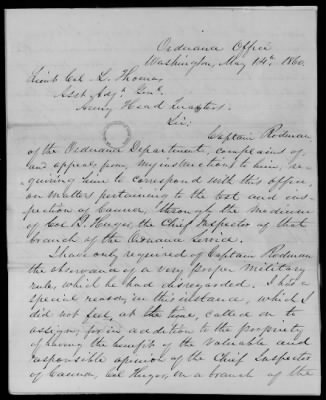 Ordnance Office
Washington, May 14th. 1860.
Lieut Col. L. Thomas,
Asst Adjt. Genl.
Army Head Quarters.
Sir;
Captain Rodman
of the Ordnance Department, complains of,
and appeals from my instructions to him, re-
quiring him to correspond with this office,
on matters pertaining to the test and ins-
pection of Cannon, through the medium
of Col B. Huger, the Chief Inspector of that
branch of the Ordnance Service.
I have only required of Captain Rodman
the observance of a very proper military
rule, which he had disregarded. I had a
special reason, in this instance, which I
did not feel, at the time, called on to
assign, for in addition to the propriety
of having the benefit of the valuable and
responsible opinion of the Chief Inspector
of Cannon, Col Huger, on a branch of the